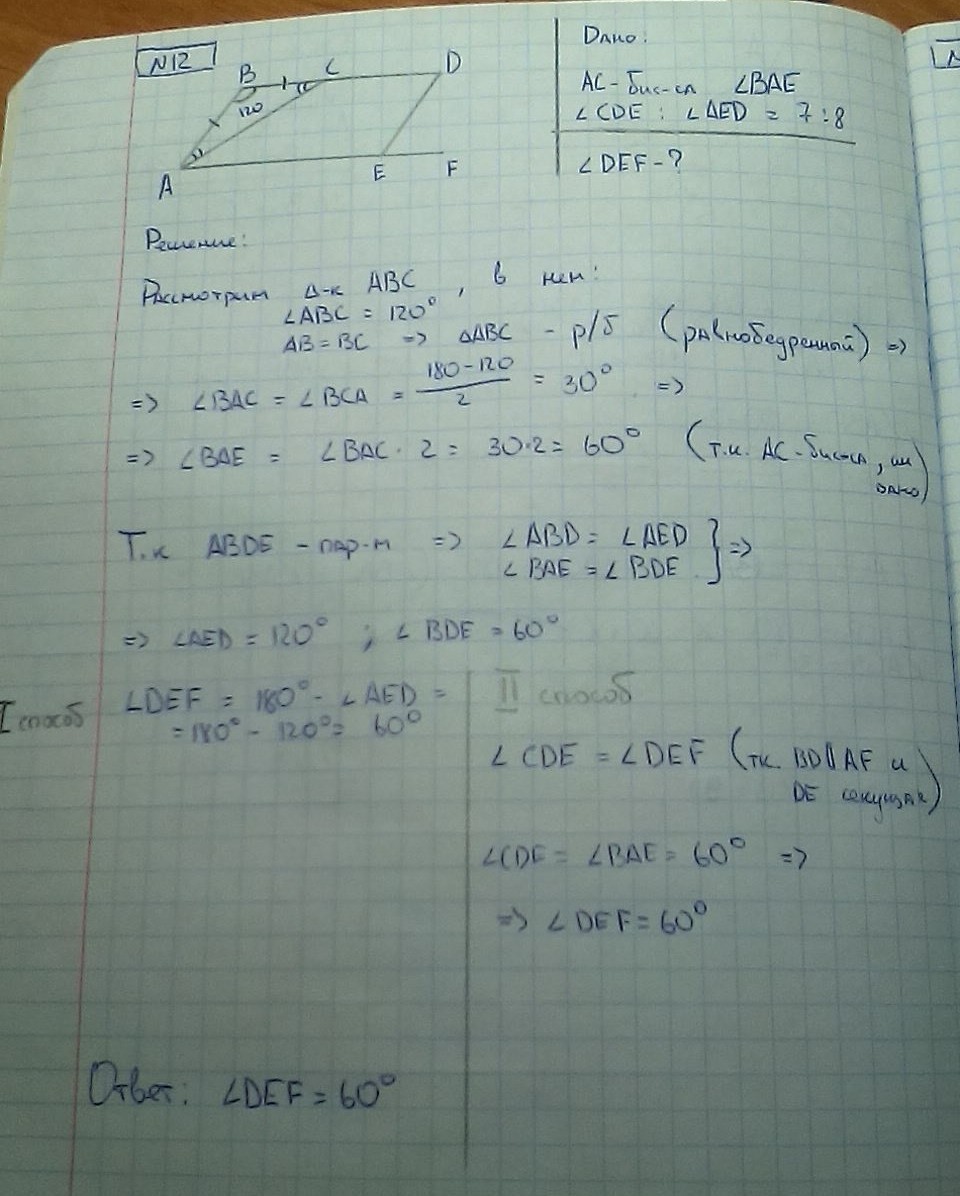 N12
B C D
120
A E F
Дано:
AC - бис-са ∠BAE
∠CDE : ∠AED = 7 : 8
∠DEF - ?
Решение:
Рассмотрим Δ-к ABC , в нем:
∠ABC = 120°
AB = BC => ΔABC - р/б (равнобедренный) =>
=> ∠BAC = ∠BCA = (180-120)/2 = 30° =>
=> ∠BAE = ∠BAC · 2 = 30·2 = 60° (т.к. AC - бис-са, из
дано)
Т.к ABDE - пар-м => ∠ABD = ∠AED
∠BAE = ∠BDE } =>
=> ∠AED = 120° ; ∠BDE = 60°
I способ
∠DEF = 180° - ∠AED =
= 180° - 120° = 60°
II способ
∠CDE = ∠DEF (тк. BD||AF и
DE секущая)
∠CDE = ∠BAE = 60° =>
=> ∠DEF = 60°
Ответ: ∠DEF = 60°